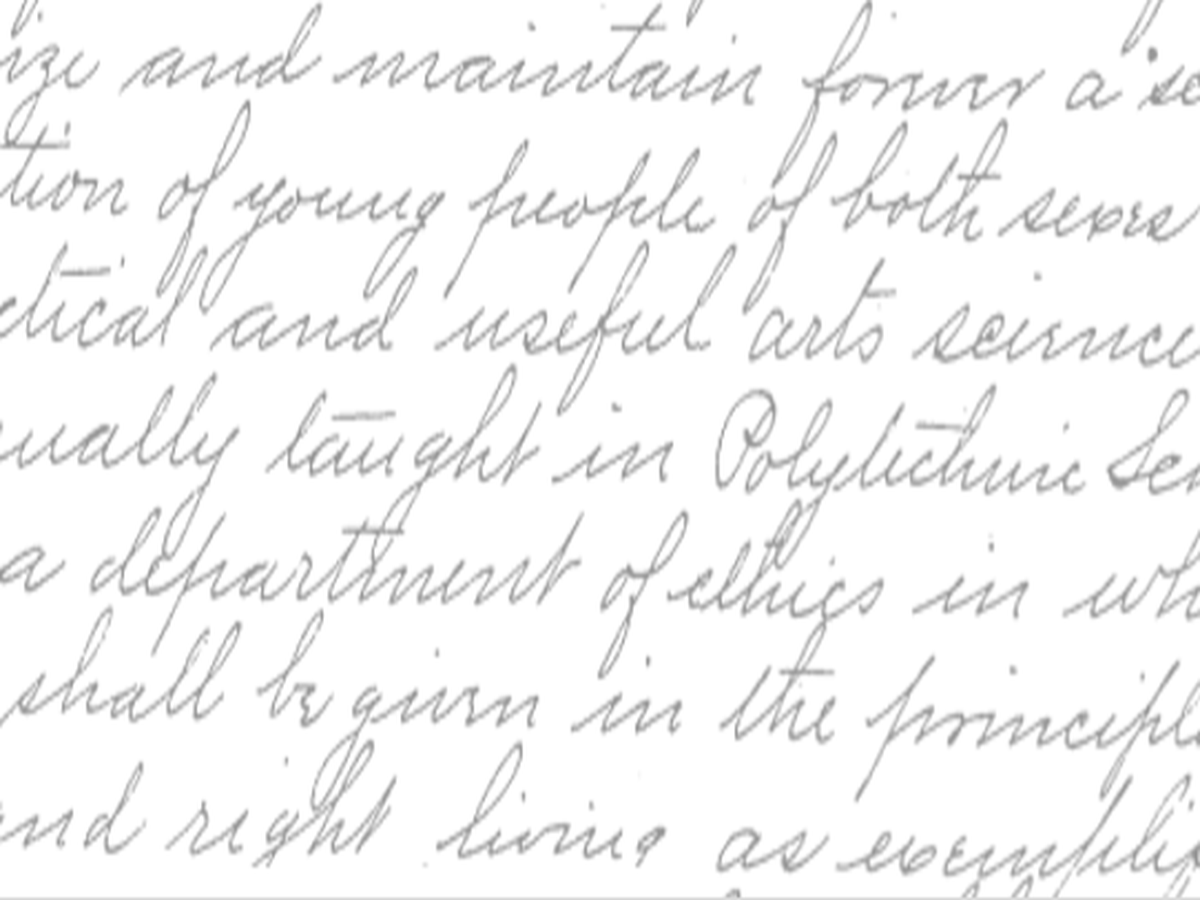 ize and maintain forever a se
tion of young people of both sexes
ctical and useful arts science
ually taught in Polytechnic Sch
a department of ethics in whi
shall be given in the principle
and right living as exemplif